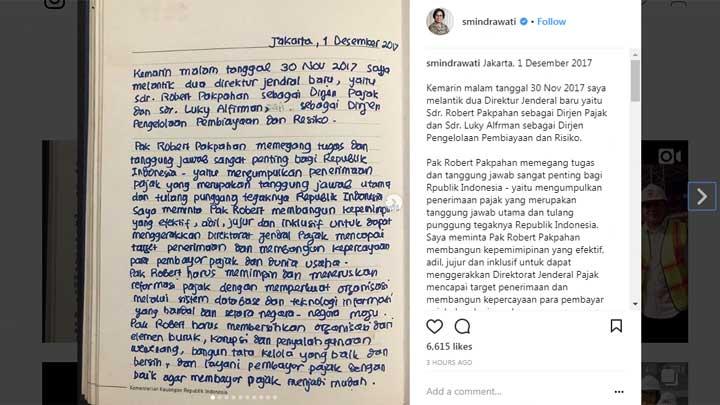 Jakarta, 1 Desember 2017
Kemarin malam tanggal 30 Nov 2017 saya
melantik dua direktur jendral baru, yaitu
sdr. Robert Pakpahan sebagai Dirjen Pajak
dan sdr. Luky Alfirman, sebagai Dirjen
Pengelolaan Pembiayaan dan Risiko.
Pak Robert Pakpahan memegang tugas dan
tanggung jawab sangat penting bagi Republik
Indonesia - yaitu mengumpulkan penerimaan
pajak yang merupakan tanggung jawab utama
dan tulang punggung tegaknya Republik Indonesia
Saya meminta Pak Robert membangun kepemimpin
yang efektif, adil, jujur dan inklusif untuk dapat
menggerakkan Direktorat Jendral Pajak mencapai
target penerimaan dan membangun kepercayaan
para pembayar pajak dan dunia usaha.
Pak Robert harus memimpin dan meneruskan
reformasi pajak dengan memperkuat organisasi
melalui sistem database dan teknologi informasi
yang handal dan setara negara-negara maju.
Pak Robert harus membersihkan organisasi dari
elemen buruk, korupsi dan penyalahgunaan
wewenang, bangun tata kelola yang baik dan
bersih, dan layani pembayar pajak dengan
baik agar membayar pajak menjadi mudah.
Kementerian Keuangan Republik Indonesia
smindrawati • Follow
smindrawati Jakarta, 1 Desember 2017
Kemarin malam tanggal 30 Nov 2017 saya
melantik dua Direktur Jenderal baru yaitu
Sdr. Robert Pakpahan sebagai Dirjen Pajak
dan Sdr. Luky Alfrman sebagai Dirjen
Pengelolaan Pembiayaan dan Risiko.
Pak Robert Pakpahan memegang tugas
dan tanggung jawab sangat penting bagi
Rpublik Indonesia - yaitu mengumpulkan
penerimaan pajak yang merupakan
tanggung jawab utama dan tulang
punggung tegaknya Republik Indonesia.
Saya meminta Pak Robert membangun
kepemimipinan yang efektif,
adil, jujur dan inklusif untuk dapat
menggerakkan Direktorat Jenderal Pajak
mencapai target penerimaan dan
membangun kepercayaan para pembayar
6,615 likes
3 HOURS AGO
Add a comment...